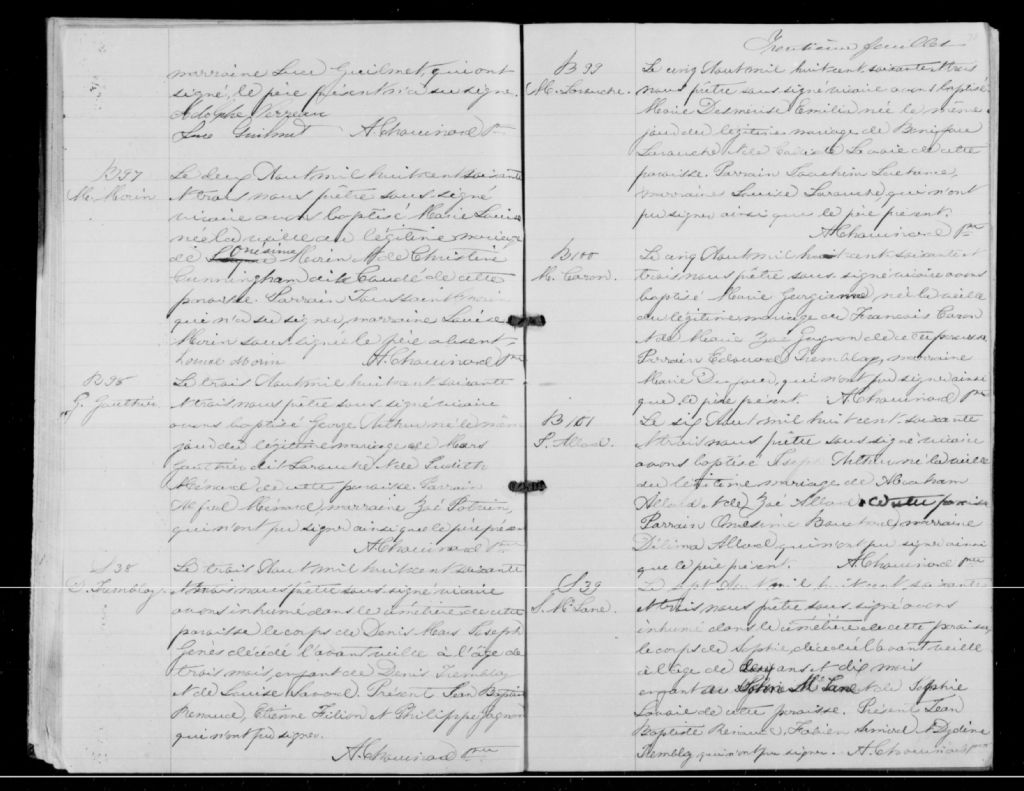 marraine Luce Guilmet, qui ont
signé, le père présent n'a su signer.
Adolphe Verreau
Luce Guilmet A. Chouinard Ptre
B 97
M. Morin
Le deux Aout mil huit cent soixante
et trois nous prêtre sous signé
vicaire avons baptisé Marie Louise
née la veille du légitime mariage
de Onesime Morin et de Christine
Cunningham dite Caudlé de cette
paroisse. Parrain Toussaint Morin
qui n'a su signer, marraine Louise
Morin sous signée le père absent.
Louise Morin A. Chouinard Ptre
B 98
G. Gauthier
Le trois Aout mil huit cent soixante
et trois nous prêtre sous signé vicaire
avons baptisé George Arthur né le même
jour du légitime mariage de Mars
Gauthier dit Larouche et de Judith
Ménard de cette paroisse. Parrain
Ménard, marraine Zoé Potvin,
qui n'ont pu signer ainsi que le père présent
A. Chouinard Ptre
S 38
D. Tremblay
Le trois Aout mil huit cent soixante
et trois nous prêtre sous signé vicaire
avons inhumé dans le cimétière de cette
paroisse le corps de Denis Mars Joseph
décédé l'avant veille à l'âge de
trois mois, enfant de Denis Tremblay
et de Louise Savard. Présent Jean Baptiste
Renaud, Etienne Filion et Philippe Gagnon
qui n'ont pu signer.
A. Chouinard Ptre
Trentième feuillet
B 99
M. Larouche.
Le cinq Aout mil huit cent soixante et trois
nous prêtre sous signé vicaire avons baptisé
Marie Desmerise Emilie née le même
jour du légitime mariage de Boniface
Larouche et de Calixte Lavoie de cette
paroisse. Parrain Joachim Lachance,
marraine Louise Larouche, qui n'ont
pu signer ainsi que le père présent.
A. Chouinard Ptre
B 100
M. Caron.
Le cinq Aout mil huit cent soixante et
trois nous prêtre sous signé vicaire avons
baptisé Marie Georgianna, née la veille
du légitime mariage de Francois Caron
et de Marie Zoé Gagnon de cette paroisse
Parrain Edouard Tremblay, marraine
Marie Dufour, qui n'ont pu signer ainsi
que le père présent. A. Chouinard Ptre
B 101
J. Allard.
Le six Aout mil huit cent soixante
et trois nous prêtre sous signé vicaire
avons baptisé Joseph Arthur né la veille
du légitime mariage de Abraham
Allard et de Zoé Allard de cette paroisse
Parrain Onésime Bouchard, marraine
Délima Allard qui n'ont pu signer ainsi
que le père présent. A. Chouinard Ptre
S 39
S. McLane.
Le sept Aout mil huit cent soixante
et trois nous prêtre sous signé avons
inhumé dans le cimétière de cette paroisse
le corps de Sophie décédé l'avant veille
à l'âge de deux ans et dix mois
enfant de John McLane et de Sophie
Lavoie de cette paroisse. Présent Jean
Baptiste Renaud, Fabien Simard et
Tremblay qui n'ont pu signer. A. Chouinard Ptre